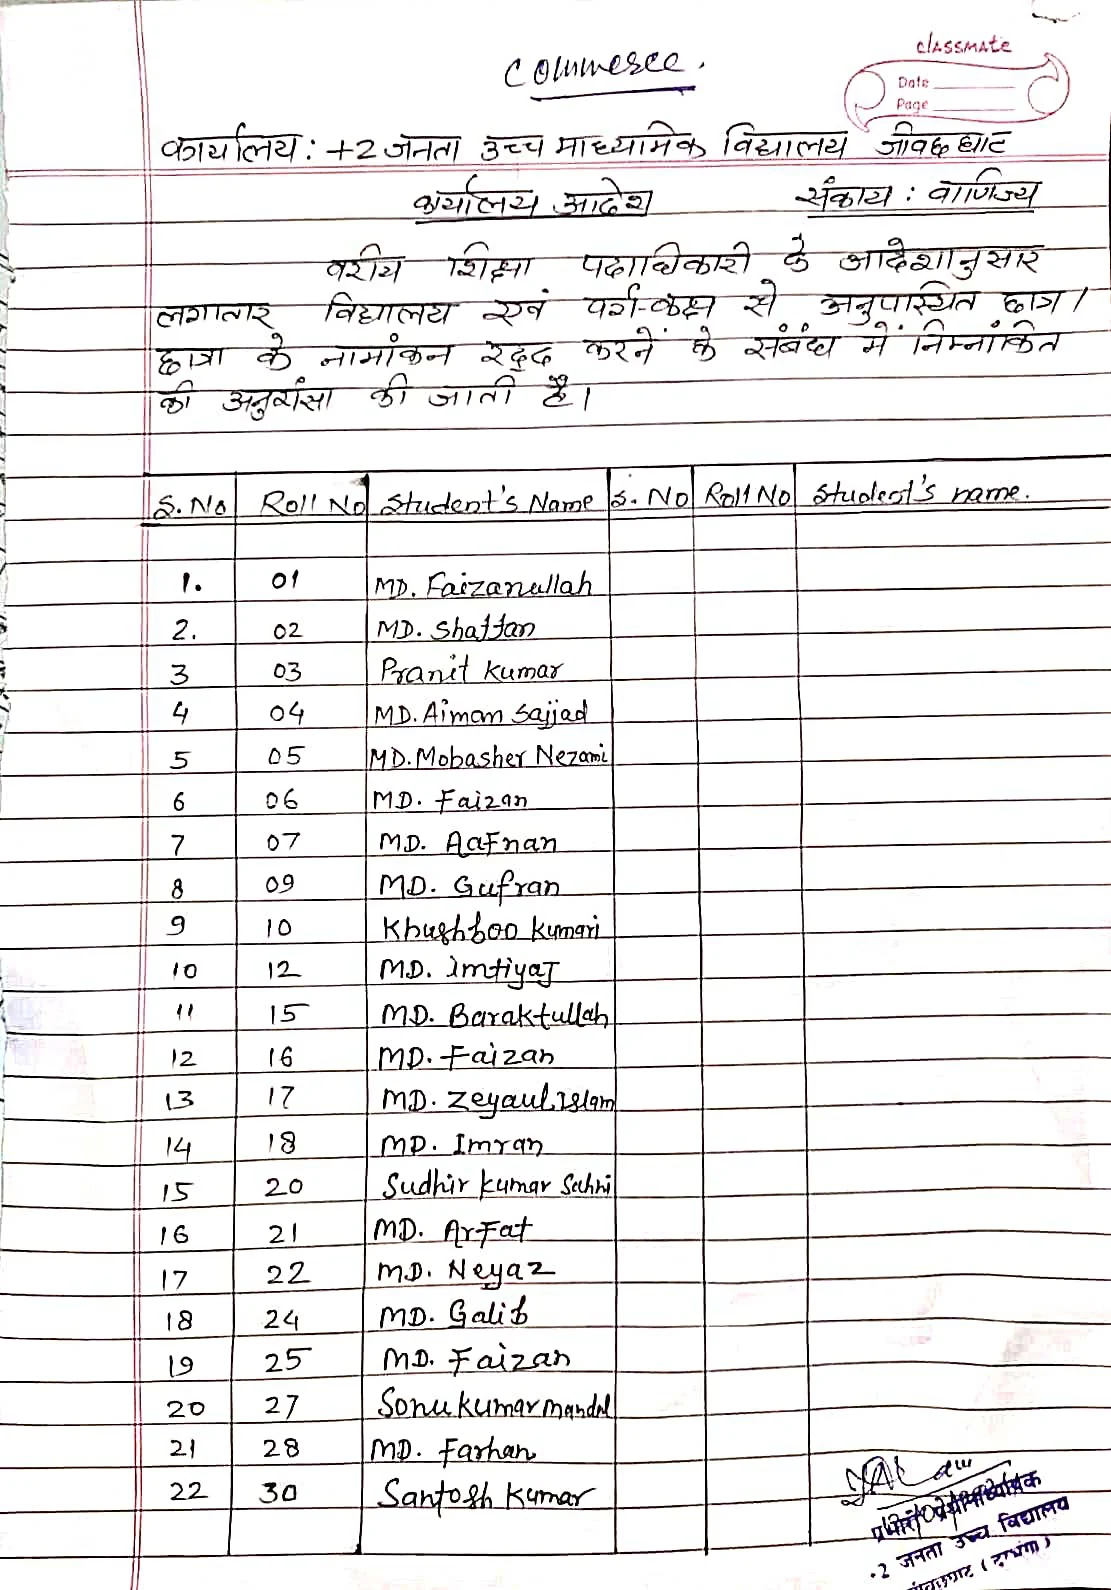 Commerce.
CLASSMATE
Date
Page
कार्यालय: +2 जनता उच्च माध्यमिक विद्यालय जीवछ घाट
कार्यालय आदेश संकाय : वाणिज्य
वरीय शिक्षा पदाधिकारी के आदेशानुसार
लगातार विद्यालय एवं वर्ग-कक्ष से अनुपस्थित छात्र /
छात्रा के नामांकन रद्द करनें के संबंध में निम्नांकित
की अनुशंसा की जाती है।
S. No Roll No Student's Name S. No Roll No Student's name.
1. 01 MD. Faizanullah
2. 02 MD. Shaffan
3 03 Pranit Kumar
4 04 MD. Aimam Sajjad
5 05 MD. Mobasher Nezami
6 06 MD. Faizan
7 07 MD. Aafnan
8 09 MD. Gufran
9 10 Khushboo Kumari
10 12 MD. Imtiyaj
11 15 MD. Baraktullah
12 16 MD. Faizan
13 17 MD. Zeyaul Islam
14 18 MD. Imran
15 20 Sudhir Kumar Sahni
16 21 MD. Arfat
17 22 MD. Neyaz
18 24 MD. Galib
19 25 MD. Faizan
20 27 Sonu Kumar Mandal
21 28 MD. Farhan
22 30 Santosh Kumar
जनता उच्च विद्यालय